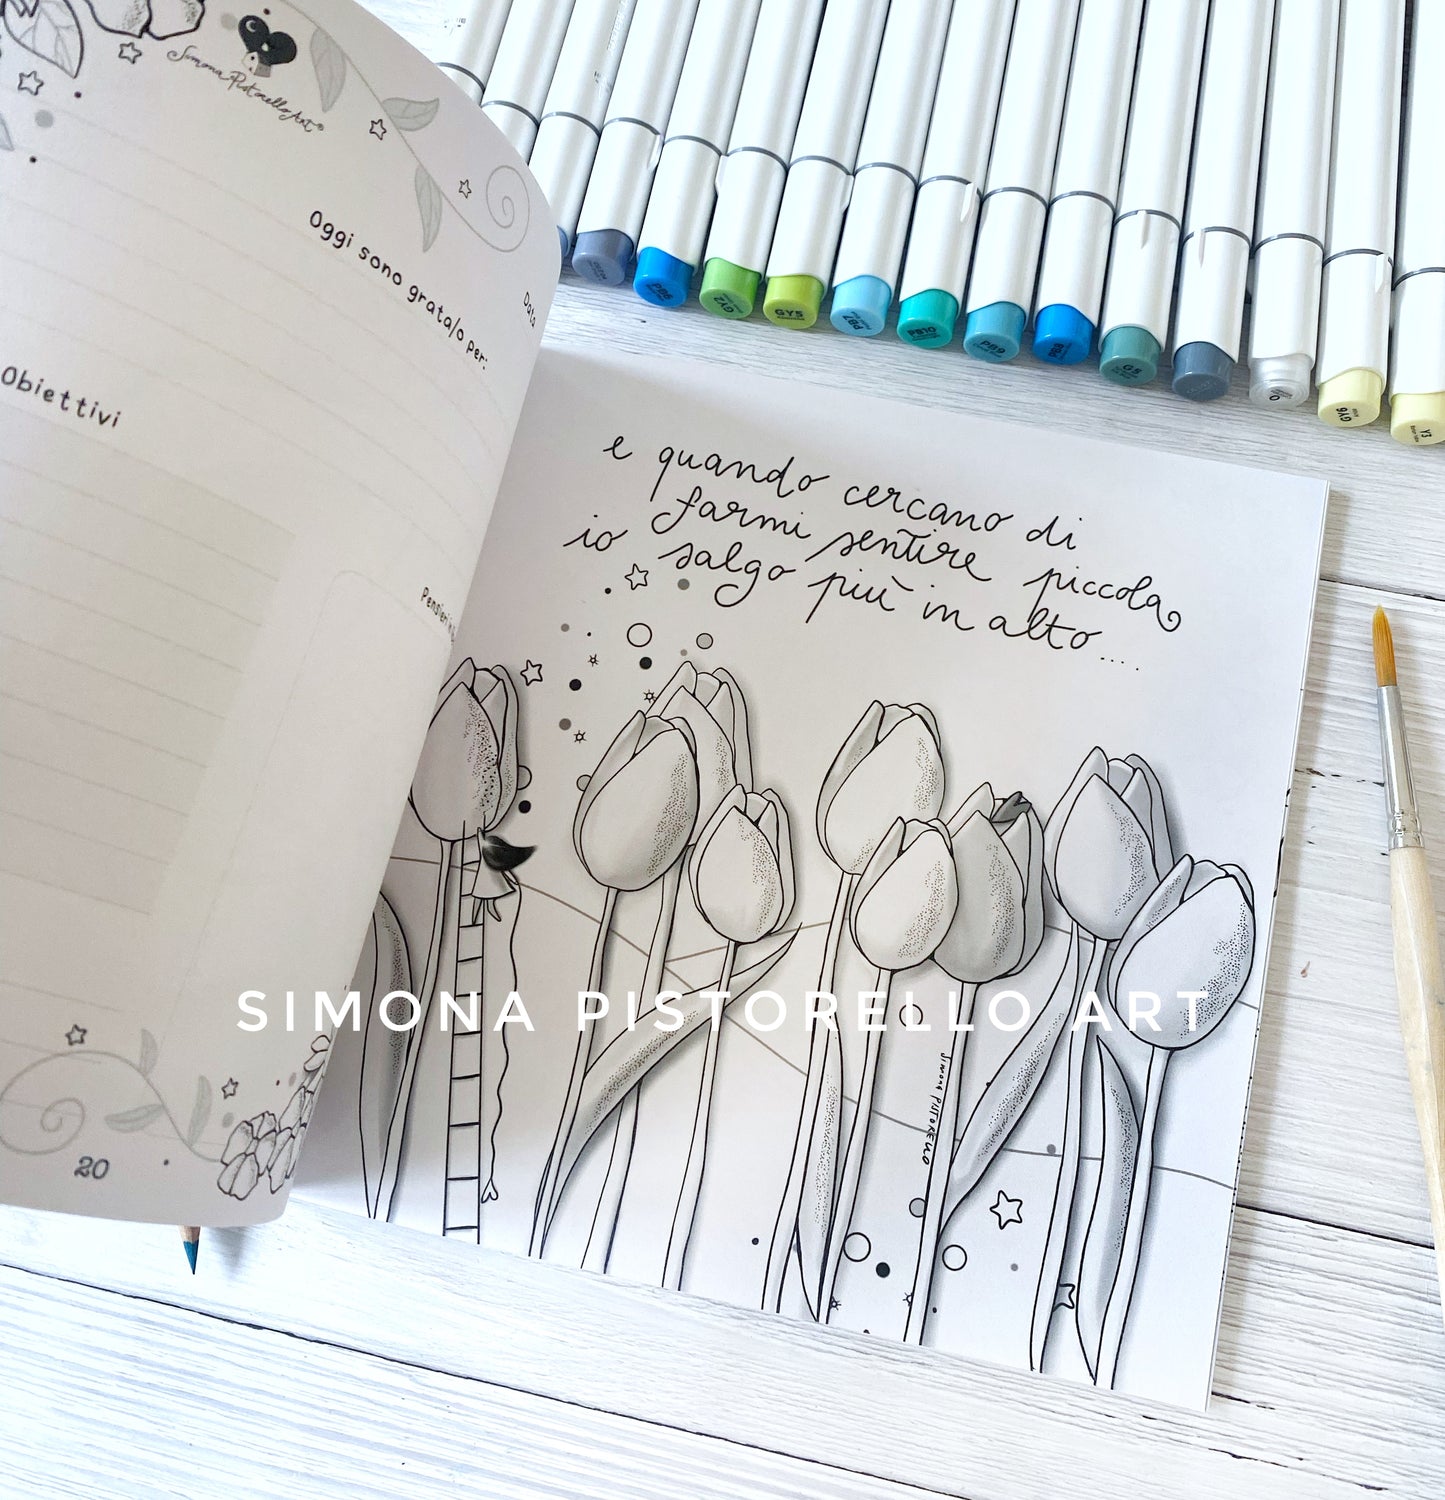 Simona Pistorello Art®
Data
Oggi sono grata/o per:
Obiettivi
20
e quando cercano di
farmi sentire piccola
io salgo più in alto....
SIMONA PISTORELLO ART
SIMONA PISTORELLO
PB6
GY2
GY5
PB7
PB10
PB9
PB8
G5
0
GY6
Y3